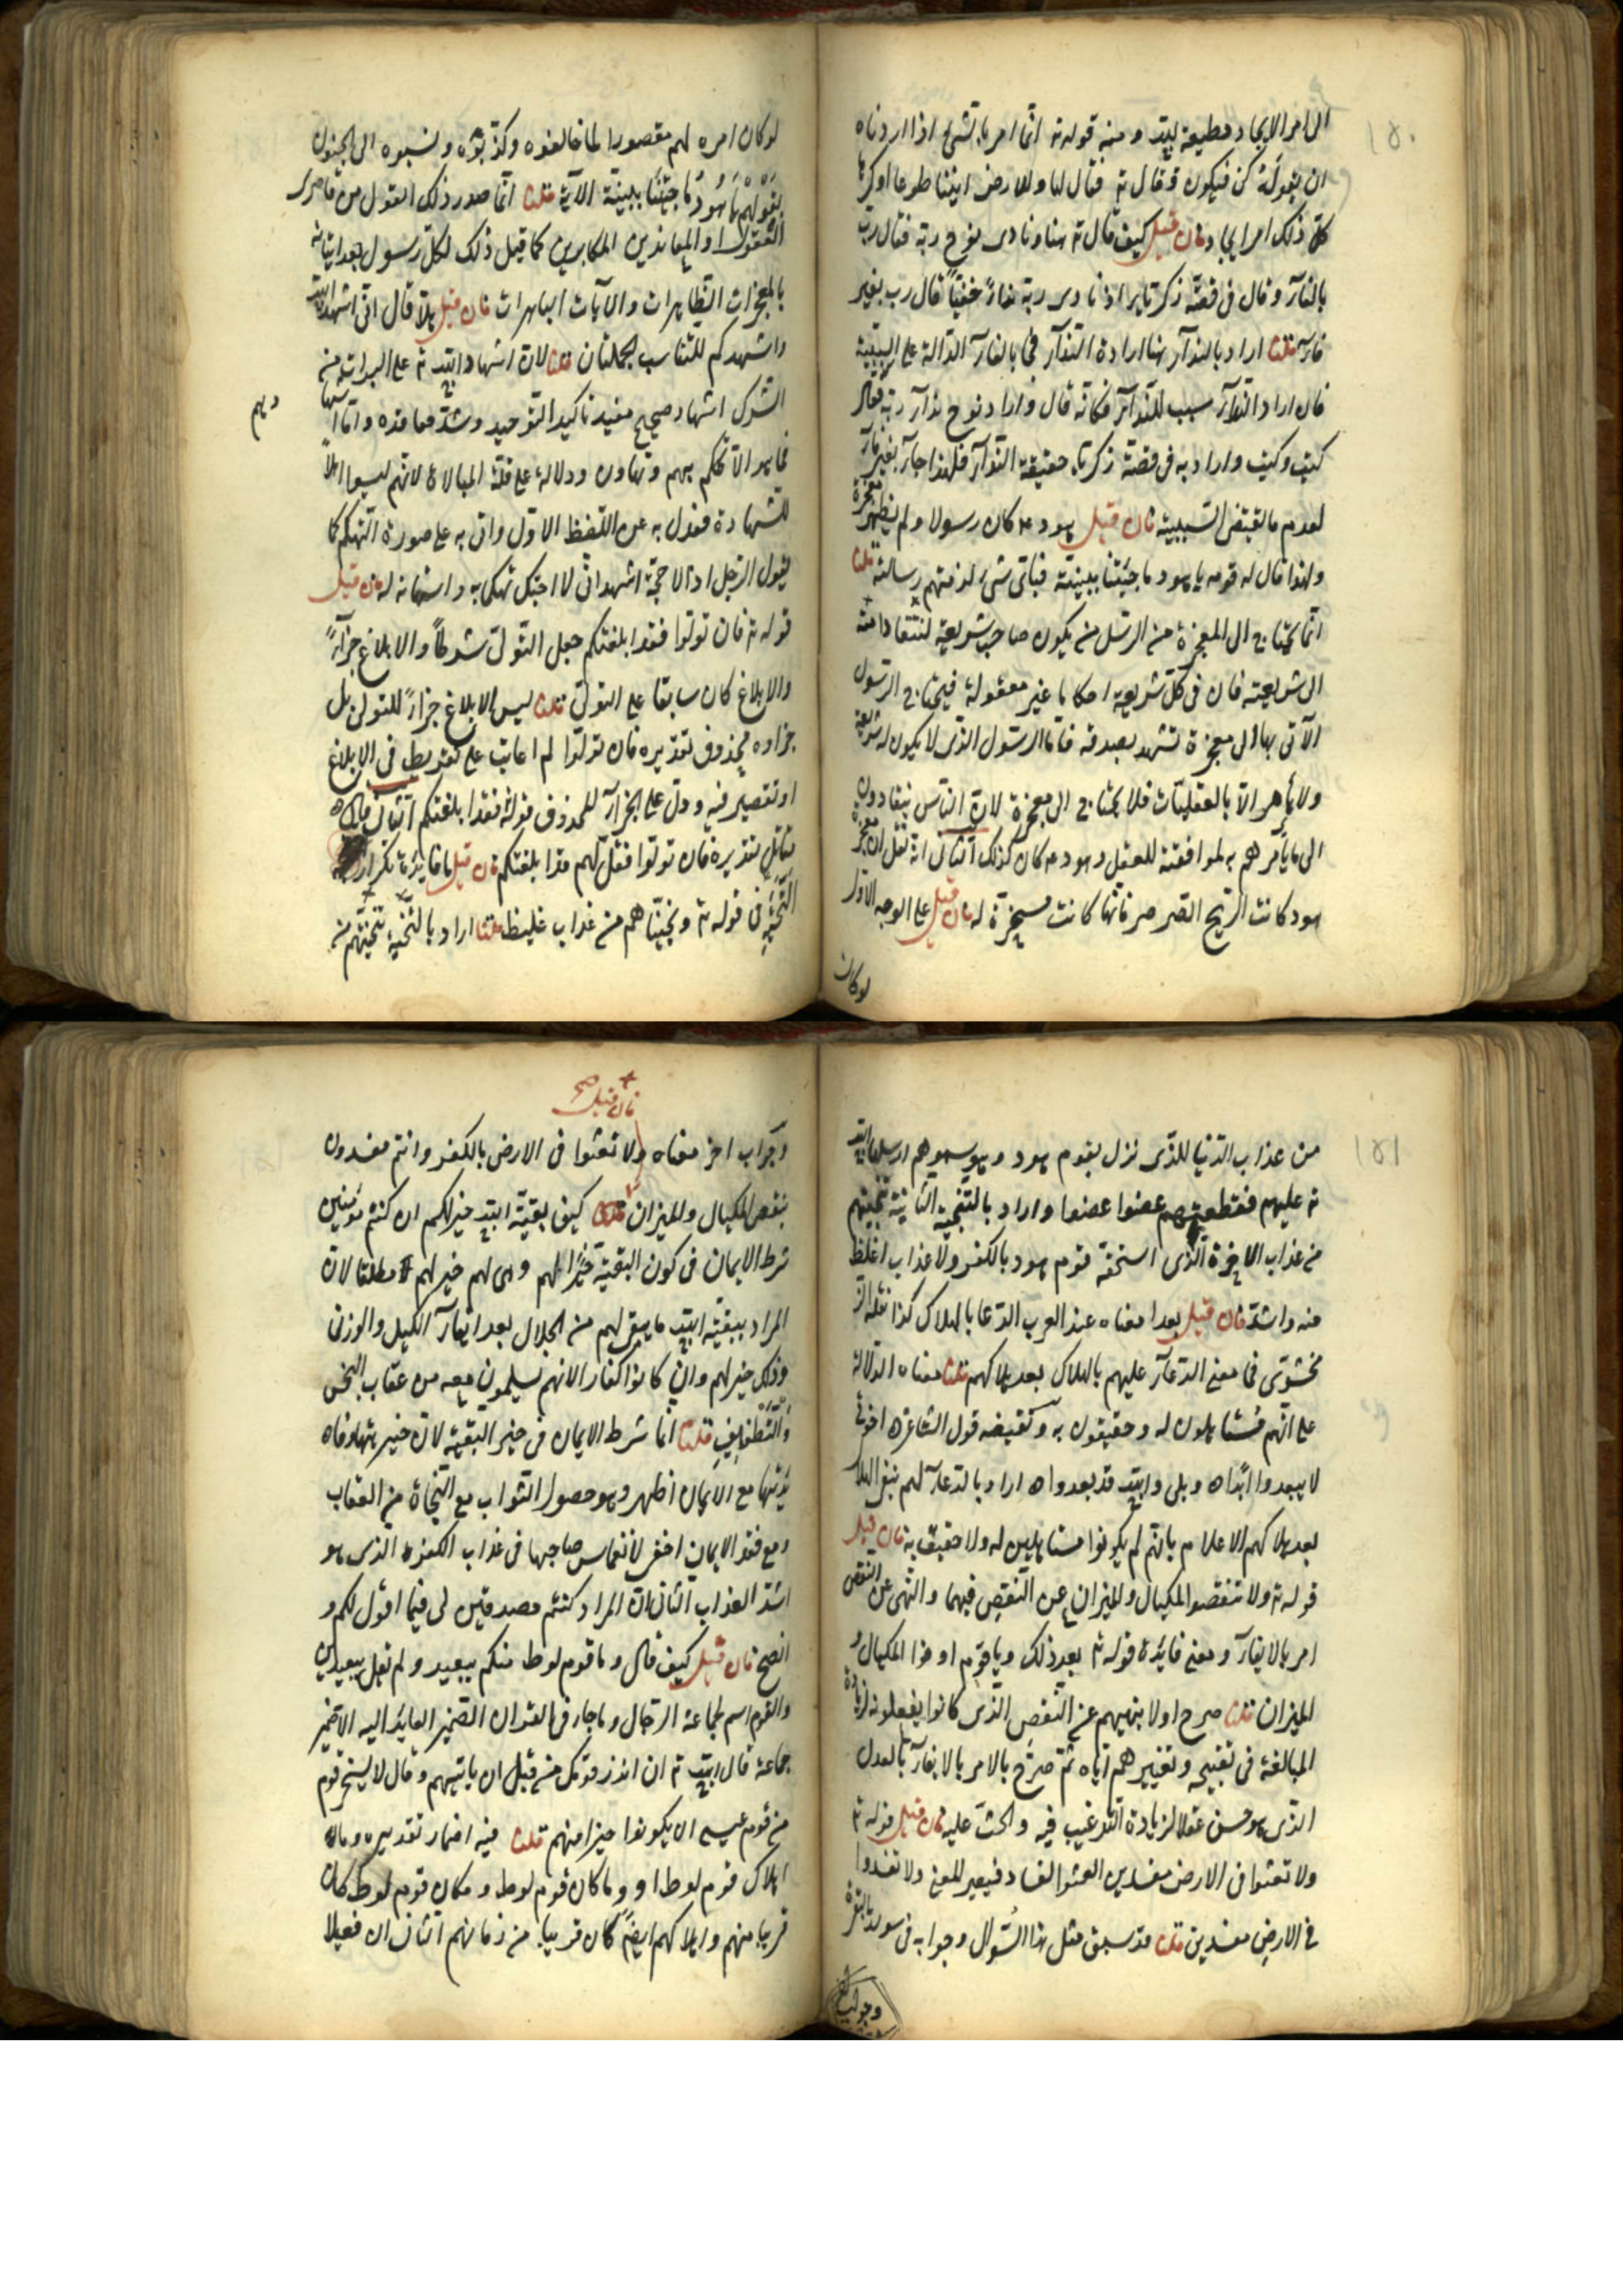 ١٥٠
الى امر الايجاد مطيعة لله ومنه قوله ته انما امرنا لشئ اذا اردناه
ان نقول له كن فيكون وقال ته فقال لها وللارض ائتيا طوعا او كرها
كل ذلك امر ايجاد فان قيل كيف قال ته هنا ونادى نوح ربه فقال رب
بالفآء وقال فى قصة زكريا اذ نادى ربه ندآء خفيا قال رب بغير
فآء قلنا اراد بالندآء هنا ارادة الندآء فجا بالفآء الدالة على السببية
فان ارادة الندآء سبب للندآء فكانه قال واراد نوح ندآء ربه فقال
كيت وكيت واراد به فى قصة زكريا حقيقة الندآء فلهذا جآء بغير فآء
لعدم ما يقتضى السببية فان قيل هود ع م كان رسولا ولم يظهر معجزة
ولهذا قال له قومه يا هود ما جئتنا ببينة فباى شئ لزمتهم رسالته قلنا
انما يحتاج الى المعجزة من الرسل من يكون صاحب شريعة لتنقاد امته
الى شريعته فان فى كل شريعة احكاما غير معقولة فيحتاج الرسول
الآتى بها الى معجزة تشهد بصدقه فاما الرسول الذى لا يكون له شريعة
ولا يأمر الا بالعقليات فلا يحتاج الى معجزة لان الناس ينقادون
الى ما يأمرهم به لموافقته للعقل وهود ع م كان كذلك الثانى انه نقل ان معجزة
هود كانت الريح الصرصر فانها كانت مسخرة له فان قيل على الوجه الاول
لو كان
لو كان امره لهم مقصورا لما خالفوه وكذبوه ونسبوه الى الجنون
بقولهم يا هود ما جئتنا ببينة الآية قلنا انما صدر ذلك القول من قاصرى
العقول او المعاندين المكابرين كما قيل ذلك لكل رسول بعد اتيانه
بالمعجزات الظاهرات والآيات الباهرات فان قيل هلا قال انى اشهد الله
واشهدكم لتتناسب الجملتان قلنا لان اشهاد الله ته على البراءة من
الشرك اشهاد صحيح مفيد تاكيد التوحيد وشد معاقده واما اشهادهم
فما هو الا تهكم بهم وتهاون ودلالة على قلة المبالاة لانهم ليسوا اهلا
للشهادة فعدل به عن اللفظ الاول واتى به على صورة التهكم كما
يقول الرجل اشهد انى لا احبك تهكما به واستهانة له فان قيل
قوله ته فان تولوا فقد ابلغتكم جعل التولى شرطا والابلاغ جزآء
والابلاغ كان سابقا على التولى قلنا ليس الابلاغ جزآء للتولى بل
جزاوه محذوف تقديره فان تولوا لم اعاتب على تفريط فى الابلاغ
او تقصير فيه ودل على الجزآء المحذوف قوله فقد ابلغتكم الثانى قال
مقاتل تقديره فان تولوا فقل لهم قد ابلغتكم فان قيل ما فائدة تكرار
التنجية فى قوله ته ونجيناهم من عذاب غليظ قلنا اراد بالتنجية تنجيتهم من
١٥١
من عذاب الدنيا الذى نزل بقوم هود وهو سموم ارسلها الله
ته عليهم فقطعتهم عضوا عضوا واراد بالتنجية الثانية تنجيتهم
من عذاب الآخرة الذى استحقه قوم هود بالكفر ولا عذاب اغلظ
منه واشد فان قيل بعدا معناه عند العرب الدعا بالهلاك كذا نقله الز
مخشرى فما معنى الدعآء عليهم بالهلاك بعد هلاكهم قلنا معناه الدلالة
على انهم مستاهلون له وحقيقون به ونقيضه قول الشاعر ه اخوتى
لا يبعدوا ابدا ه وبلى والله قد بعدوا ه اراد بالدعآء لهم بنفى الهلاك
بعد هلاكهم الاعلام بانهم لم يكونوا مستاهلين له ولا حقيق به فان قيل
قوله ته ولا تنقصوا المكيال والميزان عن النقص فيهما والنهى عن النقص
امر بالايفآء ومعنى فايدة قوله ته بعد ذلك ويا قوم اوفوا المكيال و
الميزان قلنا صرح اولا بنهيهم عن النقص الذى كانوا يفعلونه لزيادة
المبالغة فى تقبيحه وتعييرهم اياه ثم صرح بالامر بالايفآء بالعدل
الذى هو حسن عقلا لزيادة الترغيب فيه والحث عليه فان قيل قوله ته
ولا تعثوا فى الارض مفسدين العثو الفساد فيصير المعنى ولا تفسدوا
فى الارض مفسدين قلنا قد سبق مثل هذا السؤال وجوابه فى سورة البقرة
وجواب
فان قيل صح
وجواب اخر معناه ولا تعثوا فى الارض بالكفر وانتم مفسدون
بنقص المكيال والميزان كيف بقية الله خير لكم ان كنتم مؤمنين
شرط الايمان فى كون البقية خيرا لهم وهى لهم خير لهم مطلقا لان
المراد ببقية الله ما يبقى لهم من الحلال بعد ايفآء الكيل والوزن
وذلك خير لهم وان كانوا كفارا لانهم يسلمون معه من عقاب البخس
والتطفيف قلنا انما شرط الايمان فى خير البقية لان خيريتها وفائدتها
مع الايمان اظهر وهو حصول الثواب مع النجاة من العقاب
ومع فقد الايمان اخفى لانغماس صاحبها فى عذاب الكفر الذى هو
اشد العذاب الثانى ان المراد كنتم مصدقين لى فيما اقول لكم و
انصح فان قيل كيف قال وما قوم لوط منكم ببعيد ولم يقل ببعيدين
والقوم اسم لجماعة الرجال وما جاء فى القرآن الضمير العايد اليه الا ضمير
جماعة قال الله ته ان انذر قومك من قبل ان ياتيهم وقال لا يسخر قوم
من قوم عسى ان يكونوا خيرا منهم قلنا فيه اضمار تقديره وما
اهلاك قوم لوط او وما كان قوم لوط ومكان قوم لوط كان
قريبا منهم واهلاكهم ايضا كان قريبا من زمانهم الثانى ان فعيلا